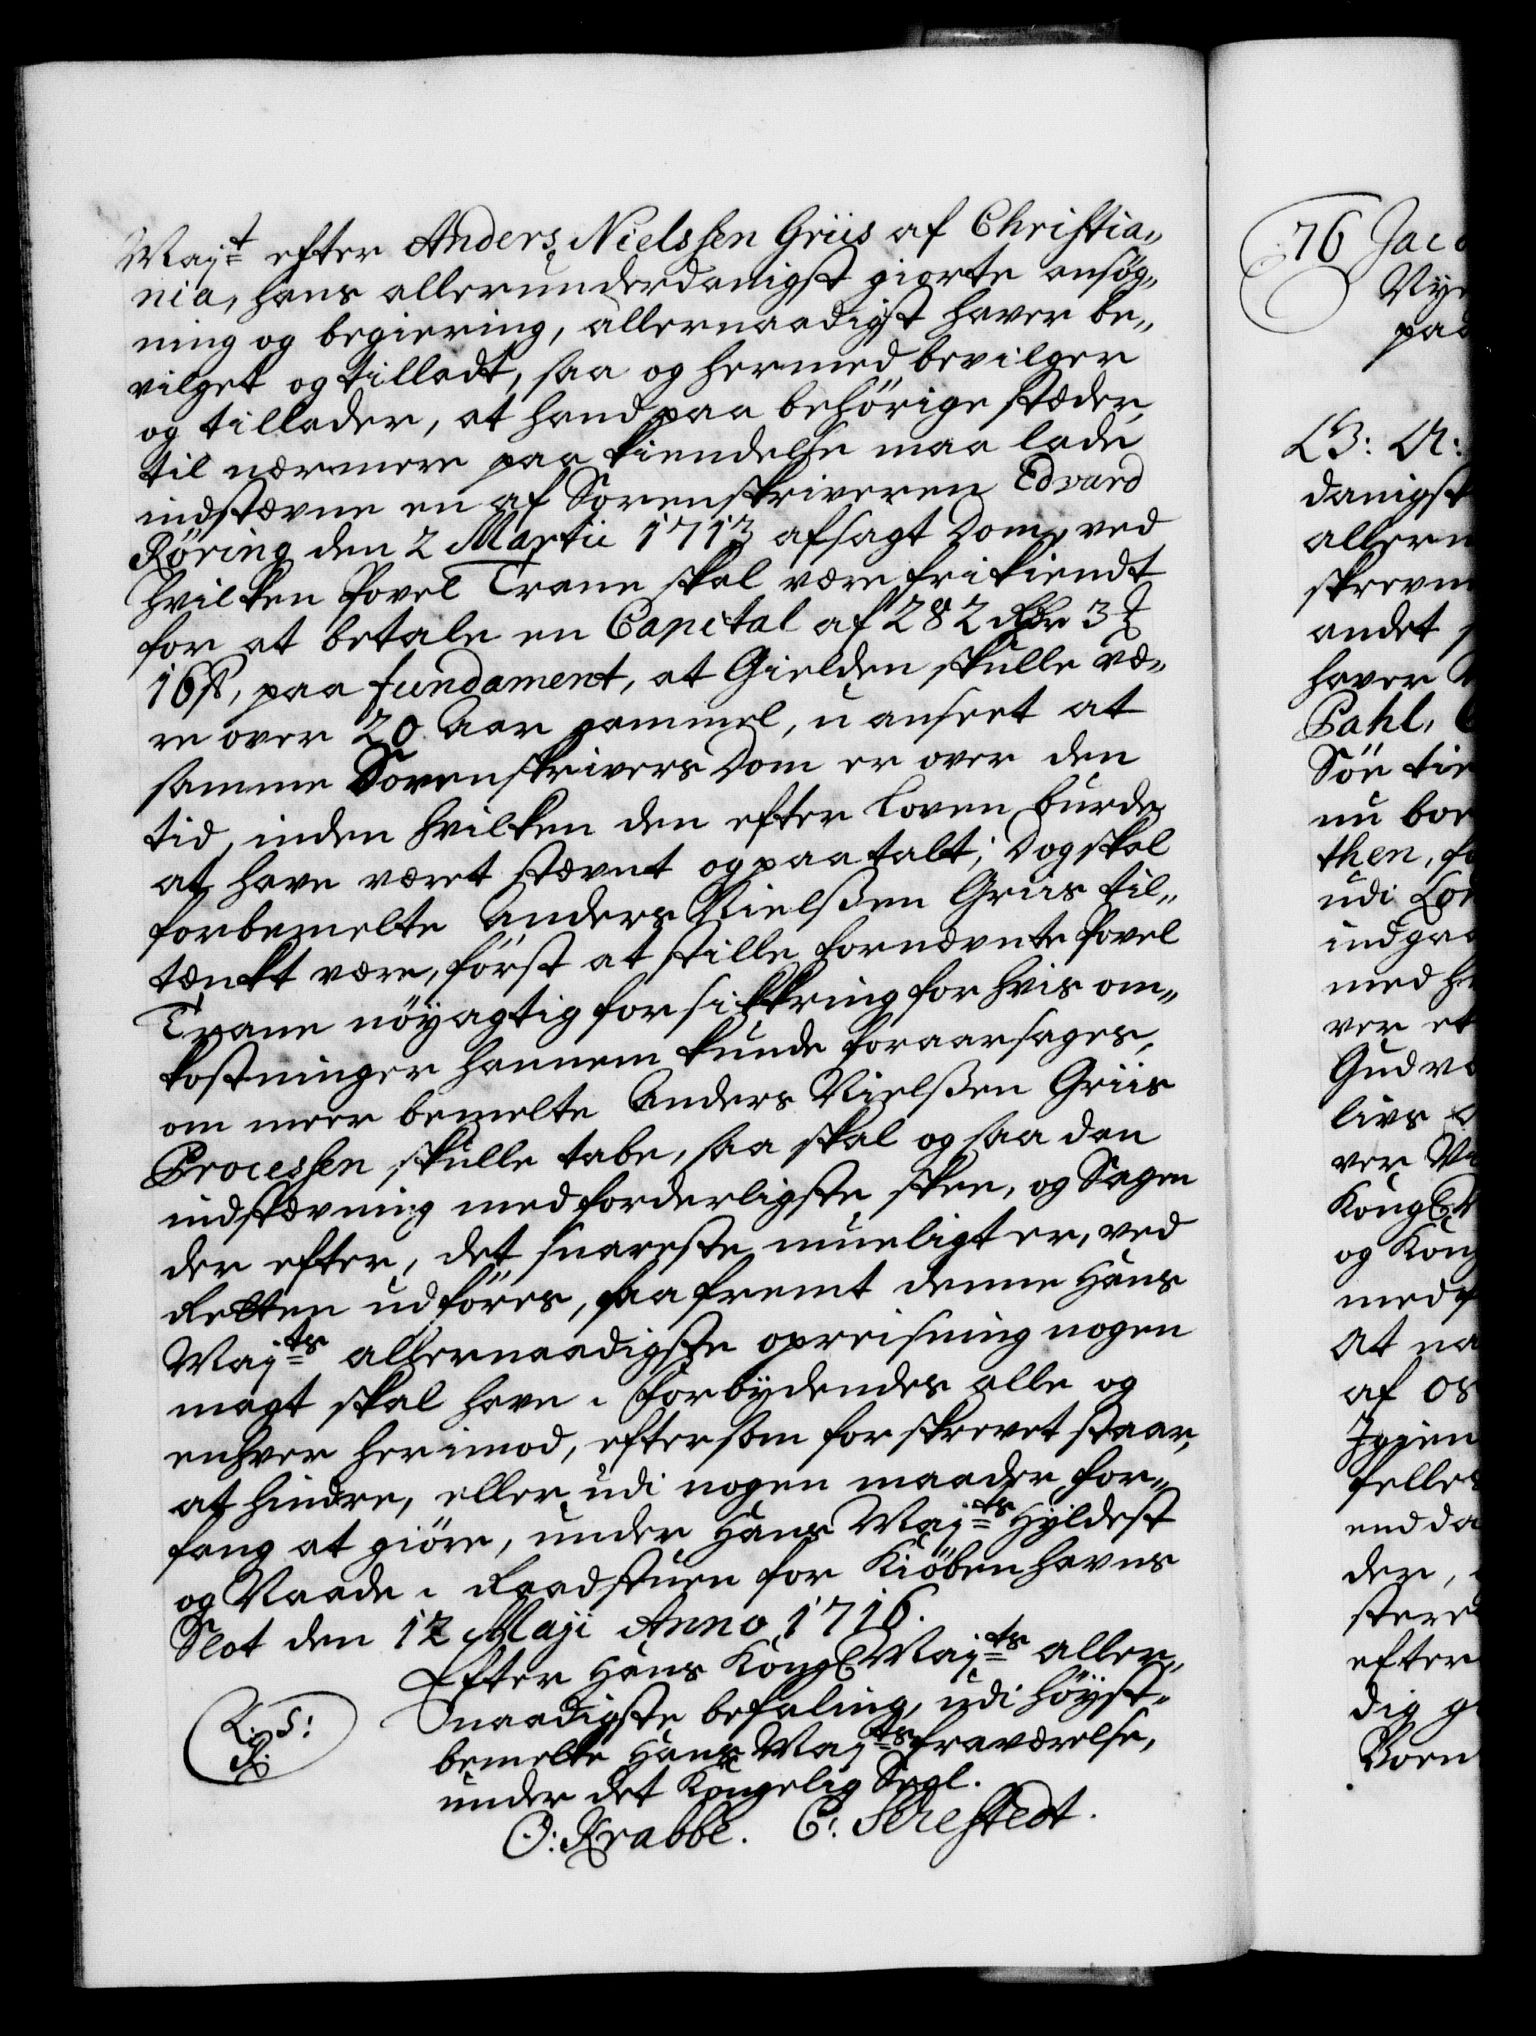 Maj:t efter Anders Nielssen Griis af Christia„
nia, hans allerunderdanigst giorte ansøg„
ning og begiering, allernaadigst haver be„
vilget og tilladt, saa og hermed bevilger
og tillader, at hand paa behörige stæder,
til nærmere paa kiendelse maa lade
indstævne en af Sorenskriveren Edvard
Röring den 2 Martii 1713 afsagt Dom, ved
hvilken Povel Trane skal være frikiendt
for at betale en Capital af 282 Rdr 3
16 s, paa fundament, at Gielden skulle væ„
re over 20 Aar gammel, u anseet at
samme Sorenskrivers Dom er over den
tid, inden hvilken den efter Loven burde
at have været stævnt og paatalt; Dog skal
forbemelte Anders Nielssen Griis til„
tænkt være, först at stille fornævnte Povel
Trane nöyagtig forsikkring for hvis om„
kostninger hannem kunde foraarsages,
om meer bemelte Anders Nielssen Griis
Processen skulle tabe, saa skal og saa den
indstævning med forderligste skee, og Sagen
der efter, det snareste mueligt er, ved
Retten udföres, saafremt denne Hans
Maj:ts allernaadigste opreisning nogen
magt skal have. Forbydendes alle og
enhver herimod, eftersom forskrevet staar,
at hindre, eller udi nogen maader for„
fang at giöre, under Hans Maj:ts Hyldest
og Naade. Raadstuen for Kiöbenhavns
Slot den 12 Maji Anno 1716.
Efter Hans Kongl: Maj:ts aller„
naadigste befaling, udi höyst„
bemelte Hans Maj:ts fraværelse,
under det Kongelig Segl.
L: S:
R:
O: Krabbe. C: Sehestedt.
76 Jaco
paa
L3: A:
danigst
allern
skrevn
andet
haver
Pahl,
Söe tie
nu boe
then, fo
udi
indgaa
med
ver et
Gud
livs
ver
Kongl:
og Kong
med
At na
af os
Igien
felles
end da
den,
stere
efter
dig g
Boen